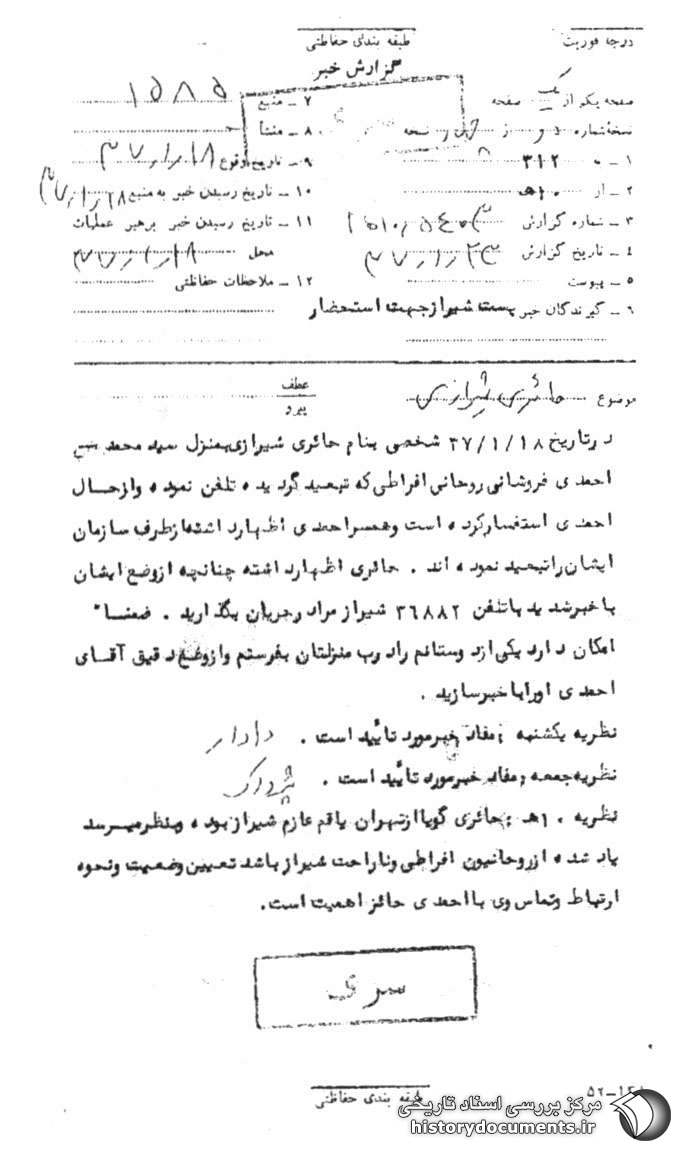 درجه فوریت
طبقه بندی حفاظتی
گزارش خبر
صفحه یکم از یک صفحه
نسخه شماره دو از نسخه
۱ ـ به ۳۱۲
۲ ـ از ۱۰ه‍
۳ ـ شماره گزارش
۴ ـ تاریخ گزارش
۵ ـ پیوست
۶ ـ گیرندگان خبر پست شیراز جهت استحضار
۷ ـ منبع ۱۵۸۵
۸ ـ منشأ
۹ ـ تاریخ وقوع ۱۸/۱/۳۷
۱۰ ـ تاریخ رسیدن خبر به منبع ۱۸/۱/۳۷
۱۱ ـ تاریخ رسیدن خبر برهبر عملیات
محل ۱۸/۱/۳۷
۱۲ ـ ملاحظات حفاظتی
موضوع حائری شیرازی
عطف
پیرو
درتاریخ ۳۷/۱/۱۸ شخصی بنام حائری شیرازی بمنزل سید محمد
احمدی فروشانی روحانی افراطی که تبعید گردیده تلفن نموده و از حال
احمدی استفسار کرده است و همسر احمدی اظهار داشته از طرف سازمان
ایشان را تبعید نموده اند . حائری اظهار داشته چنانچه از وضع ایشان
با خبر شدید با تلفن ۳۶۸۸۲ شیراز مرا در جریان بگذارید . ضمنا"
امکان دارد یکی از دوستانم را درب منزلتان بفرستم و از وضع دقیق آقای
احمدی او را با خبر سازید .
نظریه یکشنبه : مفاد خبر مورد تائید است . دادار
نظریه جمعه : مفاد خبر مورد تائید است .
نظریه ۱۰ه‍ : حائری گویا از تهران یا قم عازم شیراز بوده و بنظر میرسد
یاد شده از روحانیون افراطی و ناراحت شیراز باشد تعیین وضعیت و نحوه
ارتباط و تماس وی با احمدی حائز اهمیت است.
سری
طبقه بندی حفاظتی
مرکز بررسی اسناد تاریخی
historydocuments.ir